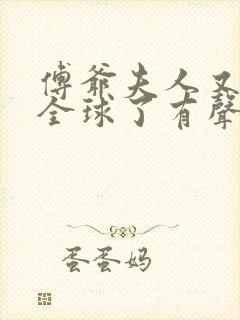 傅爺夫人又
全球了有聲
蛋蛋妈